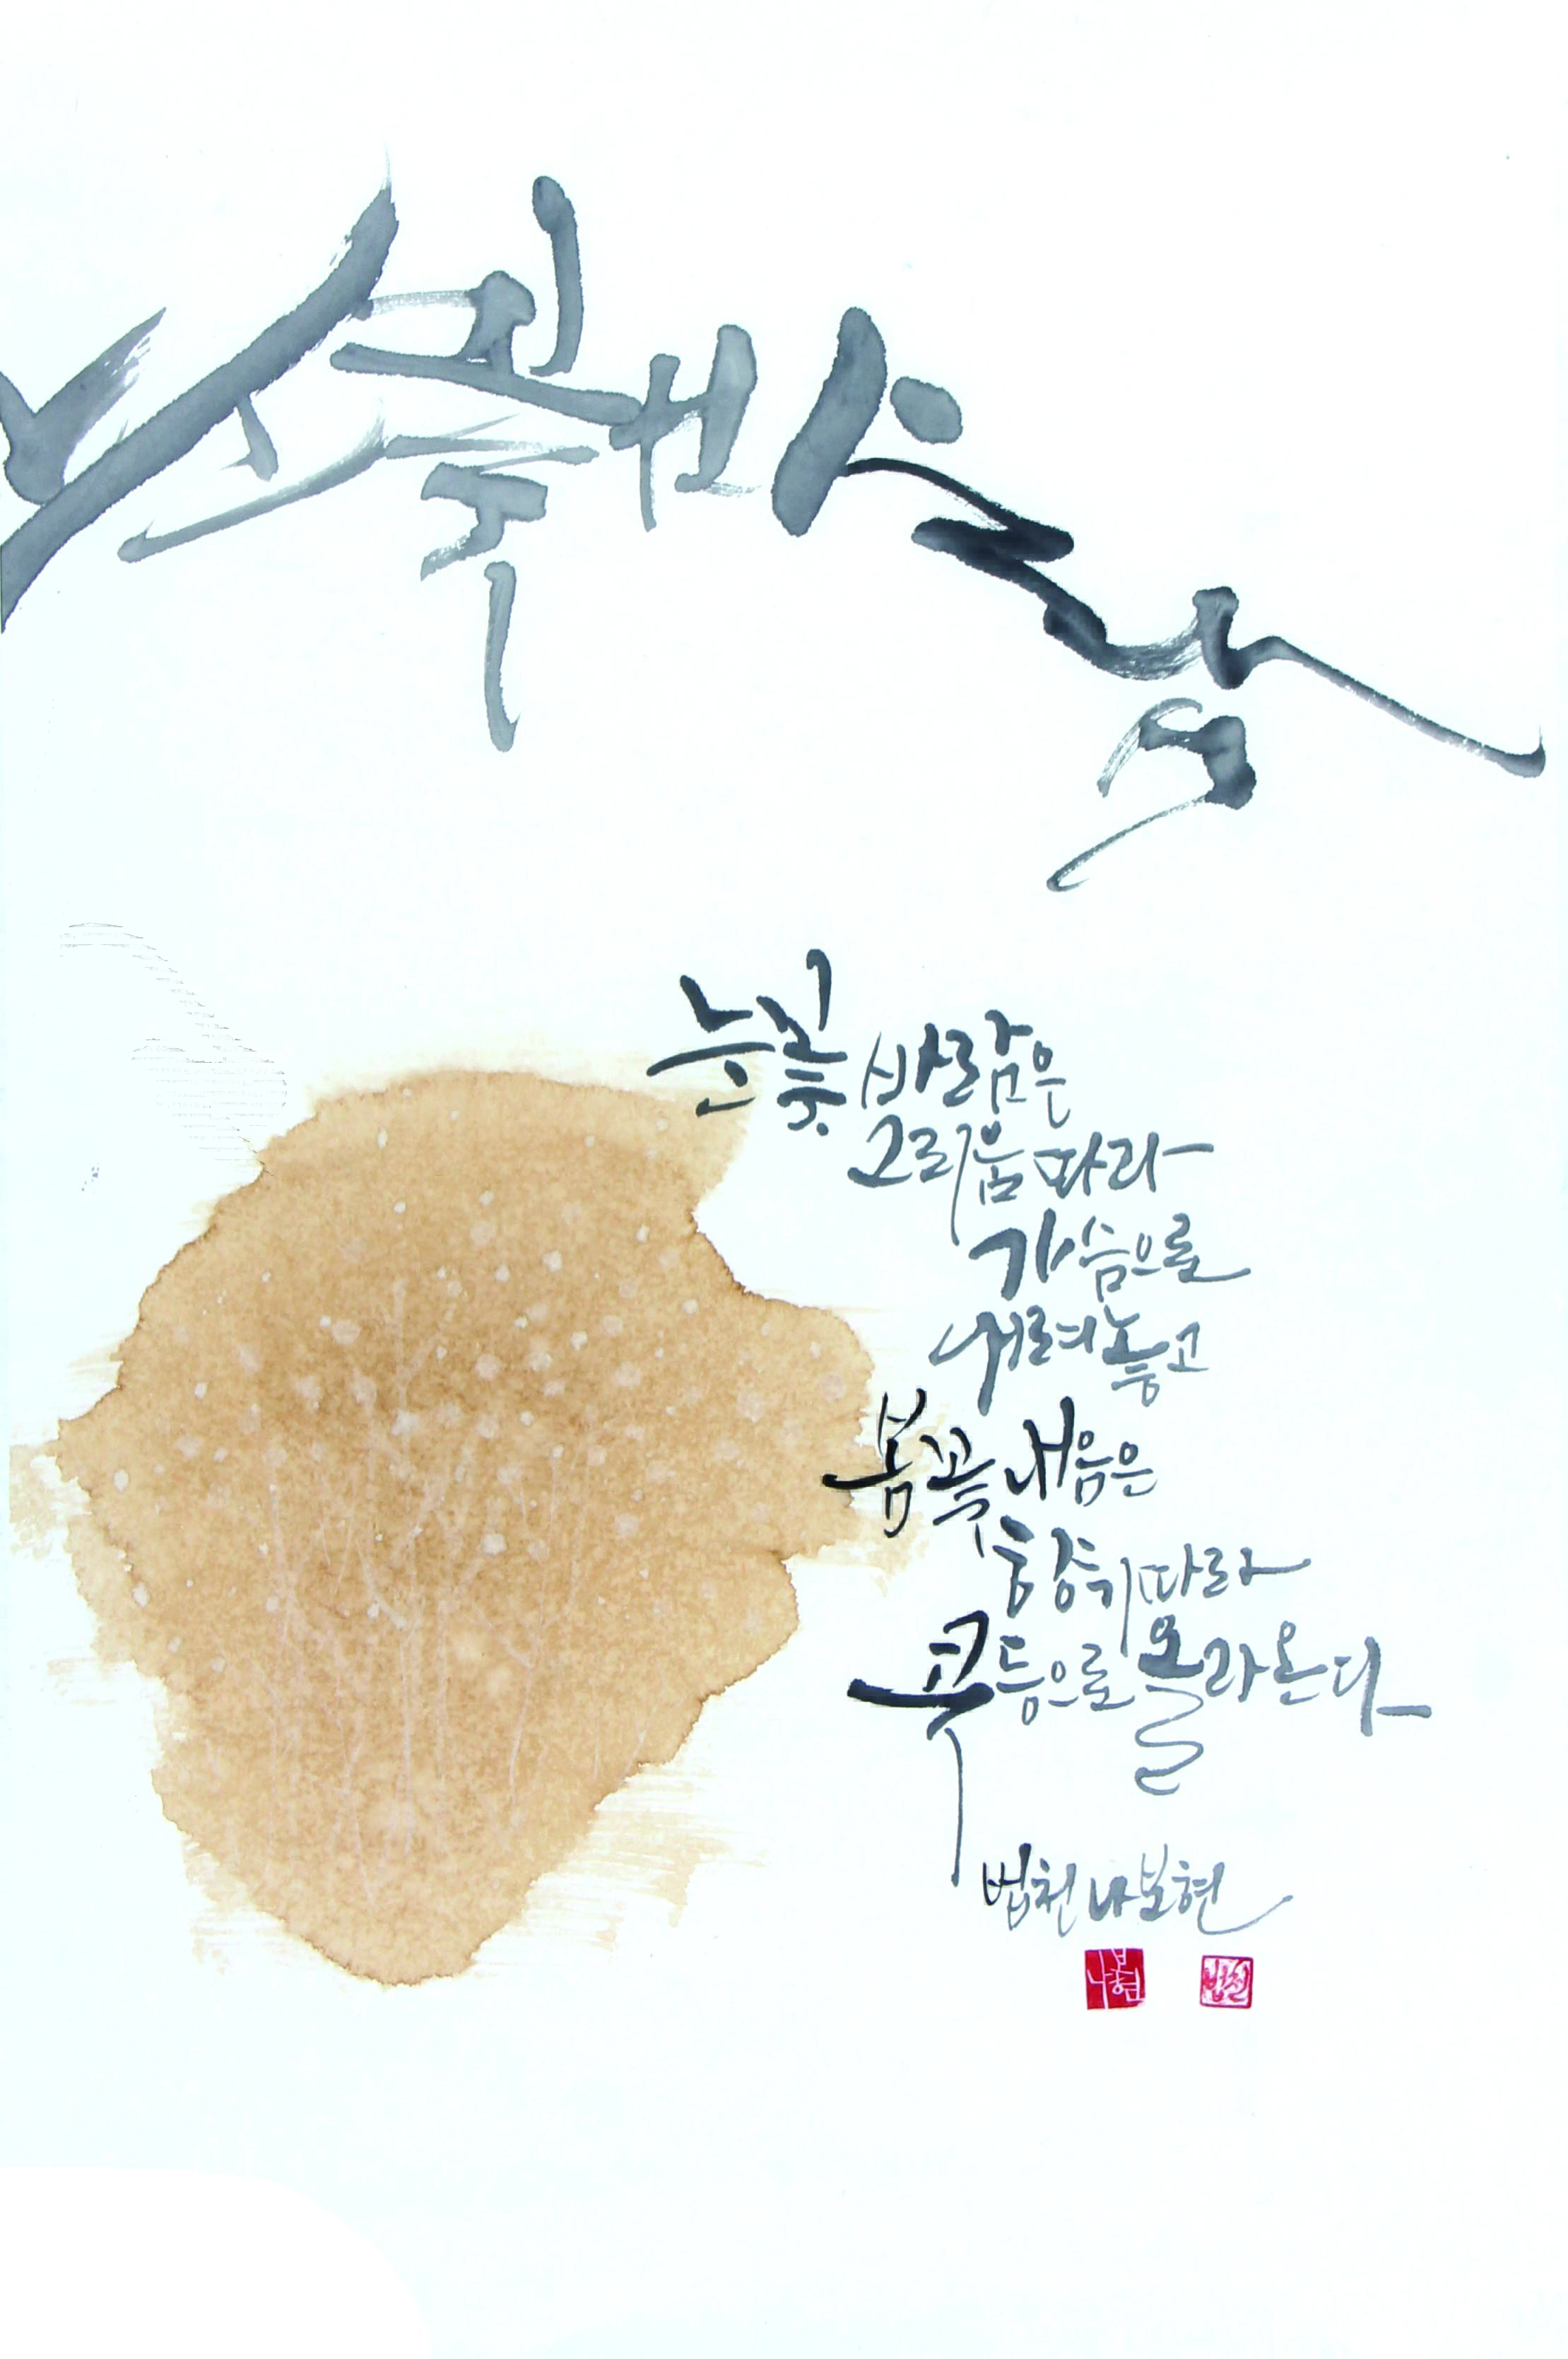 눈꽃바람
눈꽃 바람은
그리움 따라
가슴으로
내려놓고
봄꽃 내음은
향기따라
콧등으로 올라온다
법천 나보현
나보현
법천